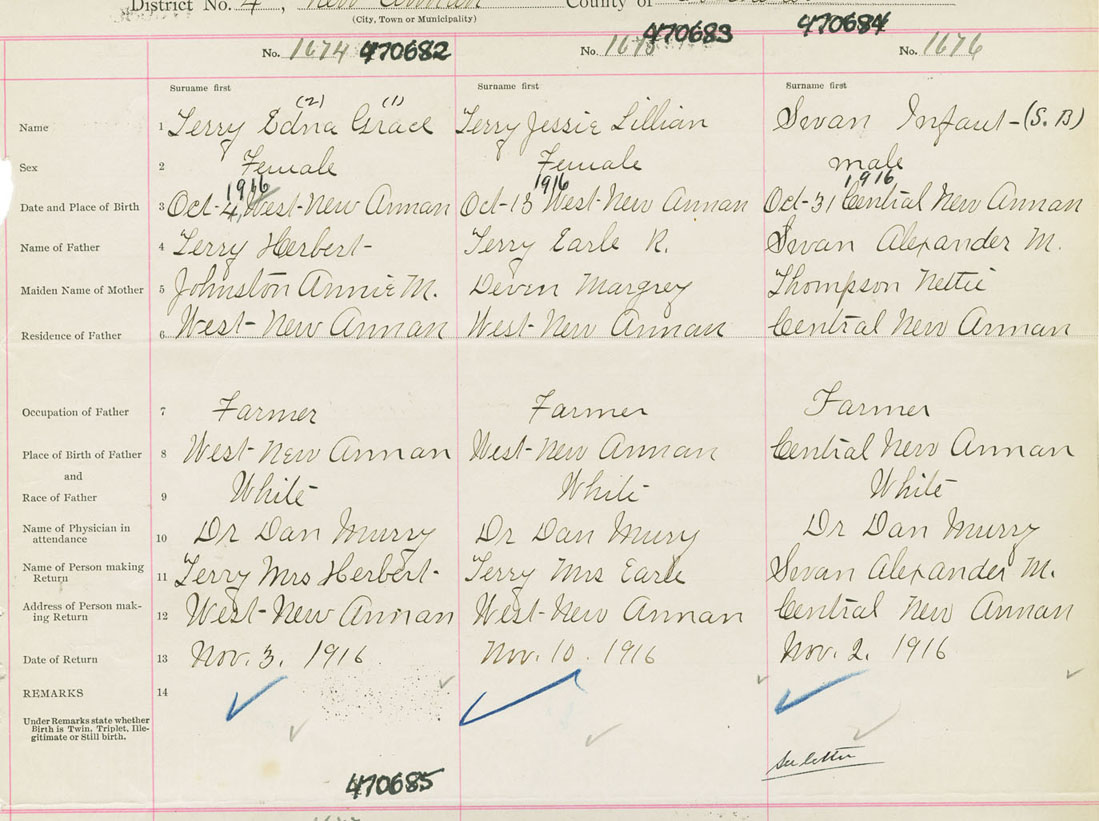 District No. 4, New Annan County of
(City, Town or Municipality)
No. 1674 470682 No. 470683 470684 No. 1676
Surname first Surname first Surname first
(2) (1)
Name 1 Terry Edna Grace Terry Jessie Lillian Swan Infant-(S.B)
Sex 2 Female Female male
1916 1916 1916
Date and Place of Birth 3 Oct-4 West-New Annan Oct-13 West-New Annan Oct-31 Central New Annan
Name of Father 4 Terry Herbert- Terry Earle R. Swan Alexander M.
Maiden Name of Mother 5 Johnston Annie M. Devin Margrey Thompson Nettie
Residence of Father 6 West-New Annan West-New Annan Central New Annan
Occupation of Father 7 Farmer Farmer Farmer
Place of Birth of Father 8 West-New Annan West-New Annan Central New Annan
and
Race of Father 9 White White White
Name of Physician in
attendance 10 Dr Dan Murry Dr Dan Mury Dr Dan Murry
Name of Person making
Return 11 Terry Mrs Herbert- Terry Mrs Earle Swan Alexander M.
Address of Person mak-
ing Return 12 West-New Annan West-New Annan Central New Annan
Date of Return 13 Nov. 3. 1916 Nov. 10. 1916 Nov. 2. 1916
REMARKS 14
Under Remarks state whether
Birth is Twin, Triplet, Ille-
gitimate or Still birth.
See letter
470685